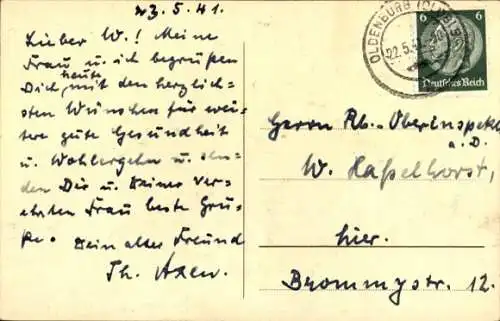 23.5.41.
Lieber W.! Meine
Frau u. ich begrüßen
Dich heute mit den herzlich-
sten Wünschen für wei-
tere gute Gesundheit
u. Wohlergehen u. sen-
den Dir u. Deiner ver-
ehrten Frau beste Grü-
ße. Dein alter Freund
Th. Axen.
OLDENBURG (OLDB)
22.5.4
6 6
Deutsches Reich
Herrn Rb.-Oberinspekt.
a.D.
W. Haßelhorst,
hier.
Brommystr. 12.